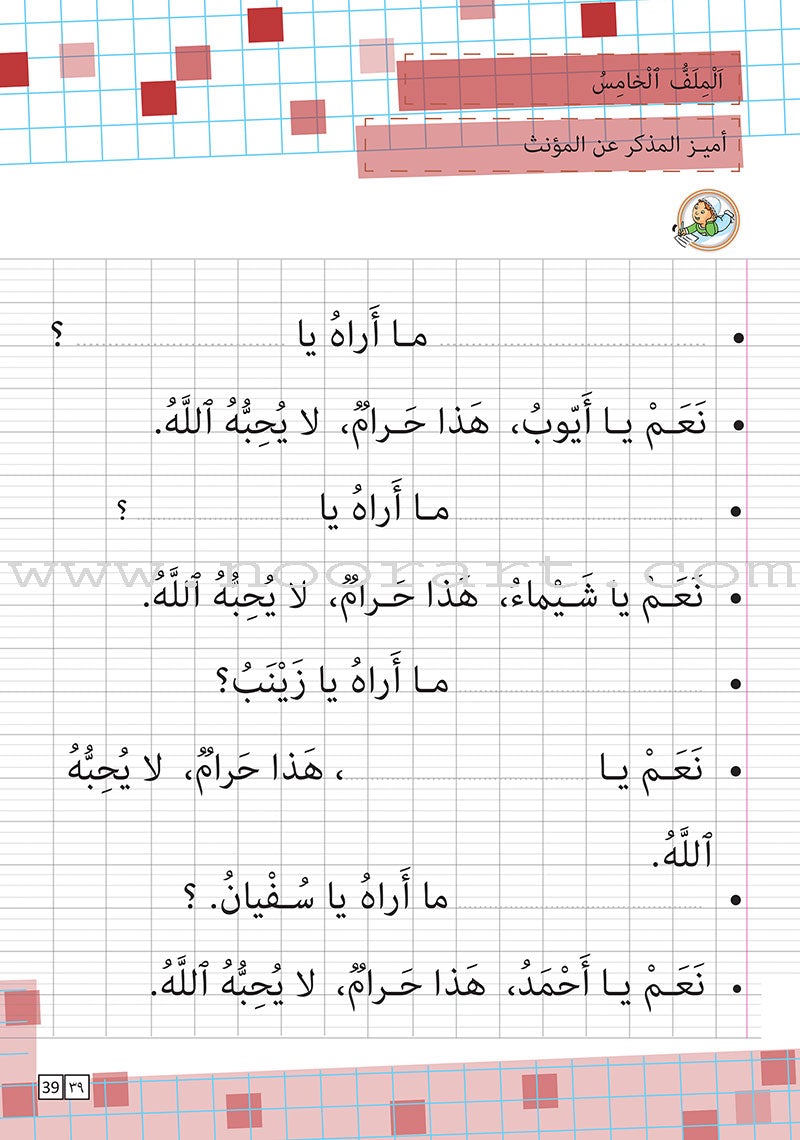 اَلْمِلَفُّ ٱلْخامِسُ
أميـز المذكر عن المؤنث
• ........................ مـا أَراهُ يا ........................ ؟
• نَعَـمْ يـا أَيّوبُ، هَذا حَـرامٌ، لا يُحِبُّهُ ٱللَّهُ.
• ........................ مـا أَراهُ يا ........................ ؟
www.noorart.com
• نَعَـمْ يا شَـيْماءُ، هَذا حَـرامٌ، لا يُحِبُّهُ ٱللَّهُ.
• ........................ مـا أَراهُ يا زَيْنَبُ؟
• نَعَـمْ يـا ........................، هَذا حَرامٌ، لا يُحِبُّهُ
ٱللَّهُ.
• ........................ ما أَراهُ يا سُـفْيانُ. ؟
• نَعَـمْ يـا أَحْمَدُ، هَذا حَـرامٌ، لا يُحِبُّهُ ٱللَّهُ.
39 ٣٩